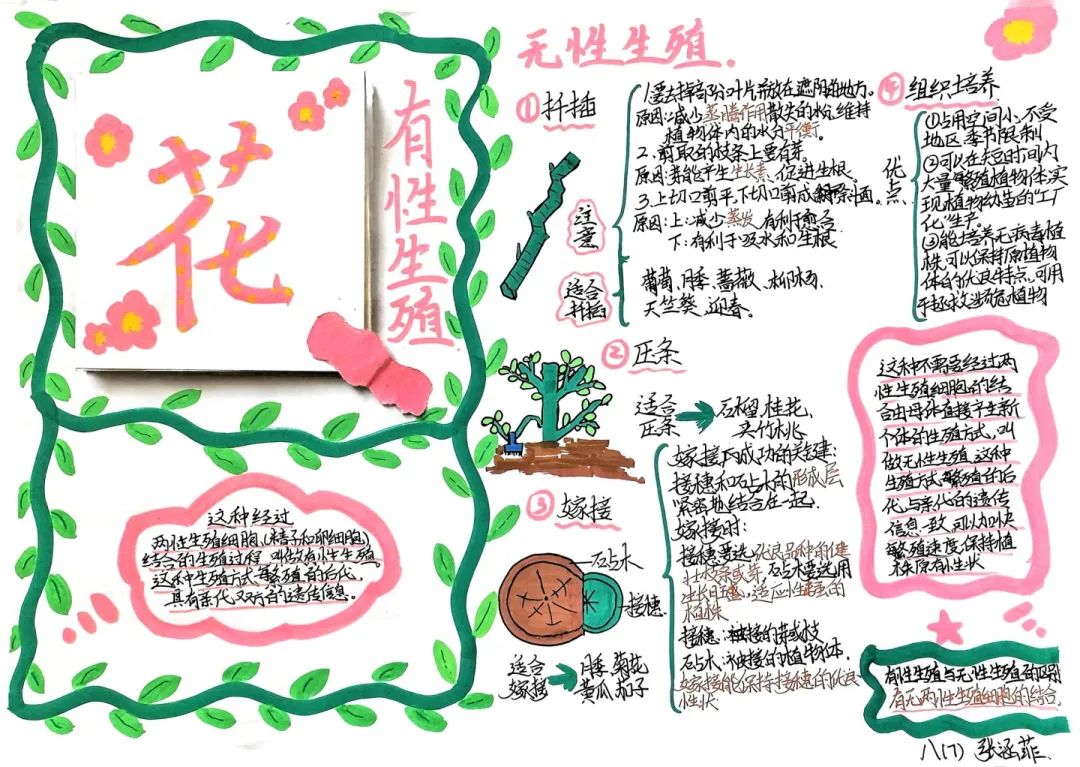 花
有性生殖
这种经过
两性生殖细胞(精子和卵细胞)
结合的生殖过程 叫做有性生殖
这种生殖方式繁殖的后代,
具有亲代双方的遗传信息。
无性生殖.
①扦插
注意
1.要去掉部分叶片并放在遮阴的地方。
原因:减少蒸腾作用散失的水分,维持
植物体内的水分平衡.
2.剪取的枝条上要有芽。
原因:芽能产生生长素、促进生根。
3.上切口剪平,下切口剪成斜面。
原因:上:减少蒸发,有利于愈合
下:有利于吸水和生根
适合
扦插
葡萄、月季、蔷薇、
天竺葵、迎春。
②压条
适合
压条
石榴、桂花、
夹竹桃
③嫁接
砧木
接穗
适合
嫁接
月季、菊花
黄瓜、茄子
嫁接成功的关键:
接穗和砧木的形成层
紧密地结合在一起.
嫁接时:
接穗要选优良品种的健
壮枝条或芽,砧木要选用
生长旺盛,适应性强的
植株
接穗:被接的芽或枝
砧木:被接的植物体.
嫁接能保持接穗的优良
性状
④组织培养
优点
①占用空间小、不受
地区、季节限制
②可以在短时间内
大量繁殖植物体,实
现植物幼苗的“工厂
化”生产
③能培养无病毒植
株,可以保持原植物
体的优良特点,可用
于拯救濒危植物
这种不需要经过两
性生殖细胞的结
合由母体直接产生新
个体的生殖方式,叫
做无性生殖,这种
生殖方式繁殖的后
代,与亲代的遗传
信息一致,可以加快
繁殖速度,保持植
株原有性状
有性生殖与无性生殖的区别
有无两性生殖细胞的结合.
八(7) 张涵菲